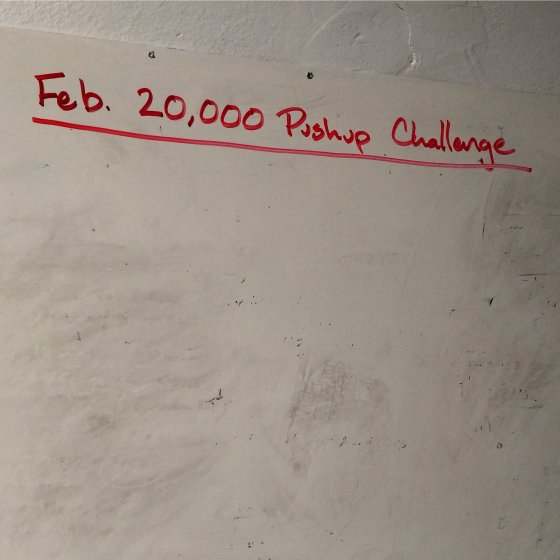 Feb. 20,000 Pushup Challenge